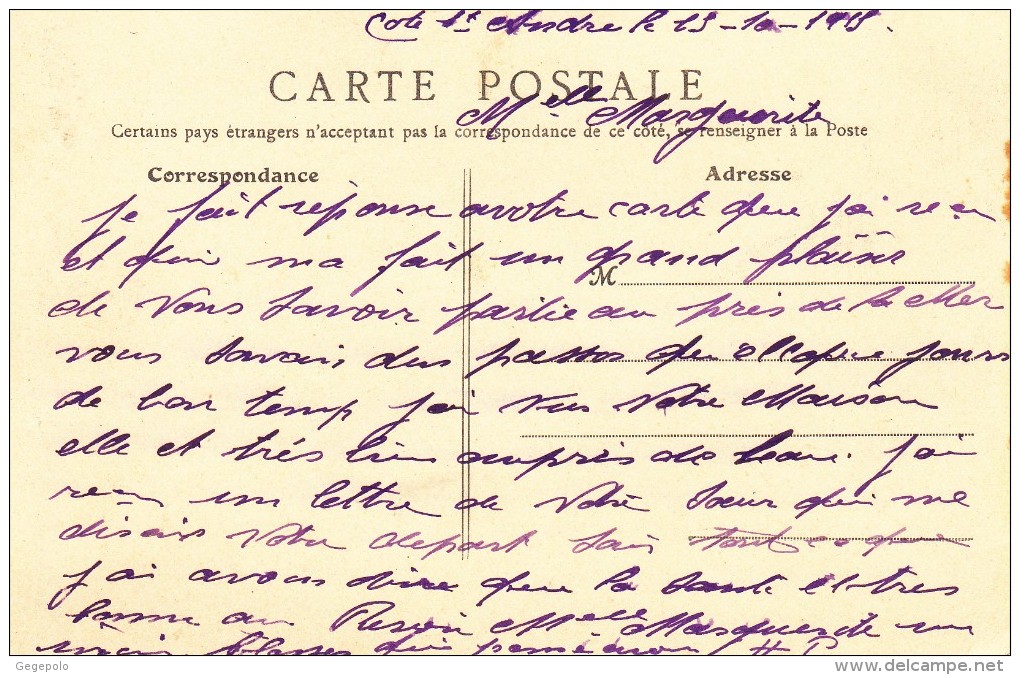 Cote St Andre le 15-10-1915.
CARTE POSTALE
Melle Marguerite
Certains pays étrangers n'acceptant pas la correspondance de ce côté, se renseigner à la Poste
Correspondance
Adresse
M
je fait réponse a votre carte que j'ai reçu
et qui ma fait un grand plaisir
de vous savoir partie au près de la Mer
vous savais dus passos quelque jours
de bon temp j'ai vus votre Maison
elle et très bien auprès de leau. j'ai
reçu un lettre de votre sœur qui me
disais votre depart sais tout ce que
j'ai avous dire que la santé et tres
bonne au Revoir Melle Marguerite un
blesser qui pense a vous H P
Gegepolo
www.delcampe.net